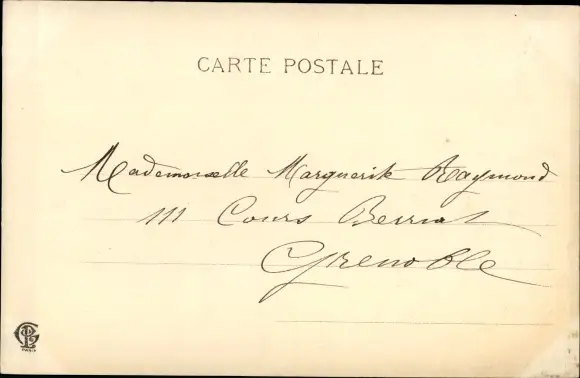 CARTE POSTALE
Mademoiselle Marguerite Raymond
111 Cours Berriat
Grenoble
PARIS